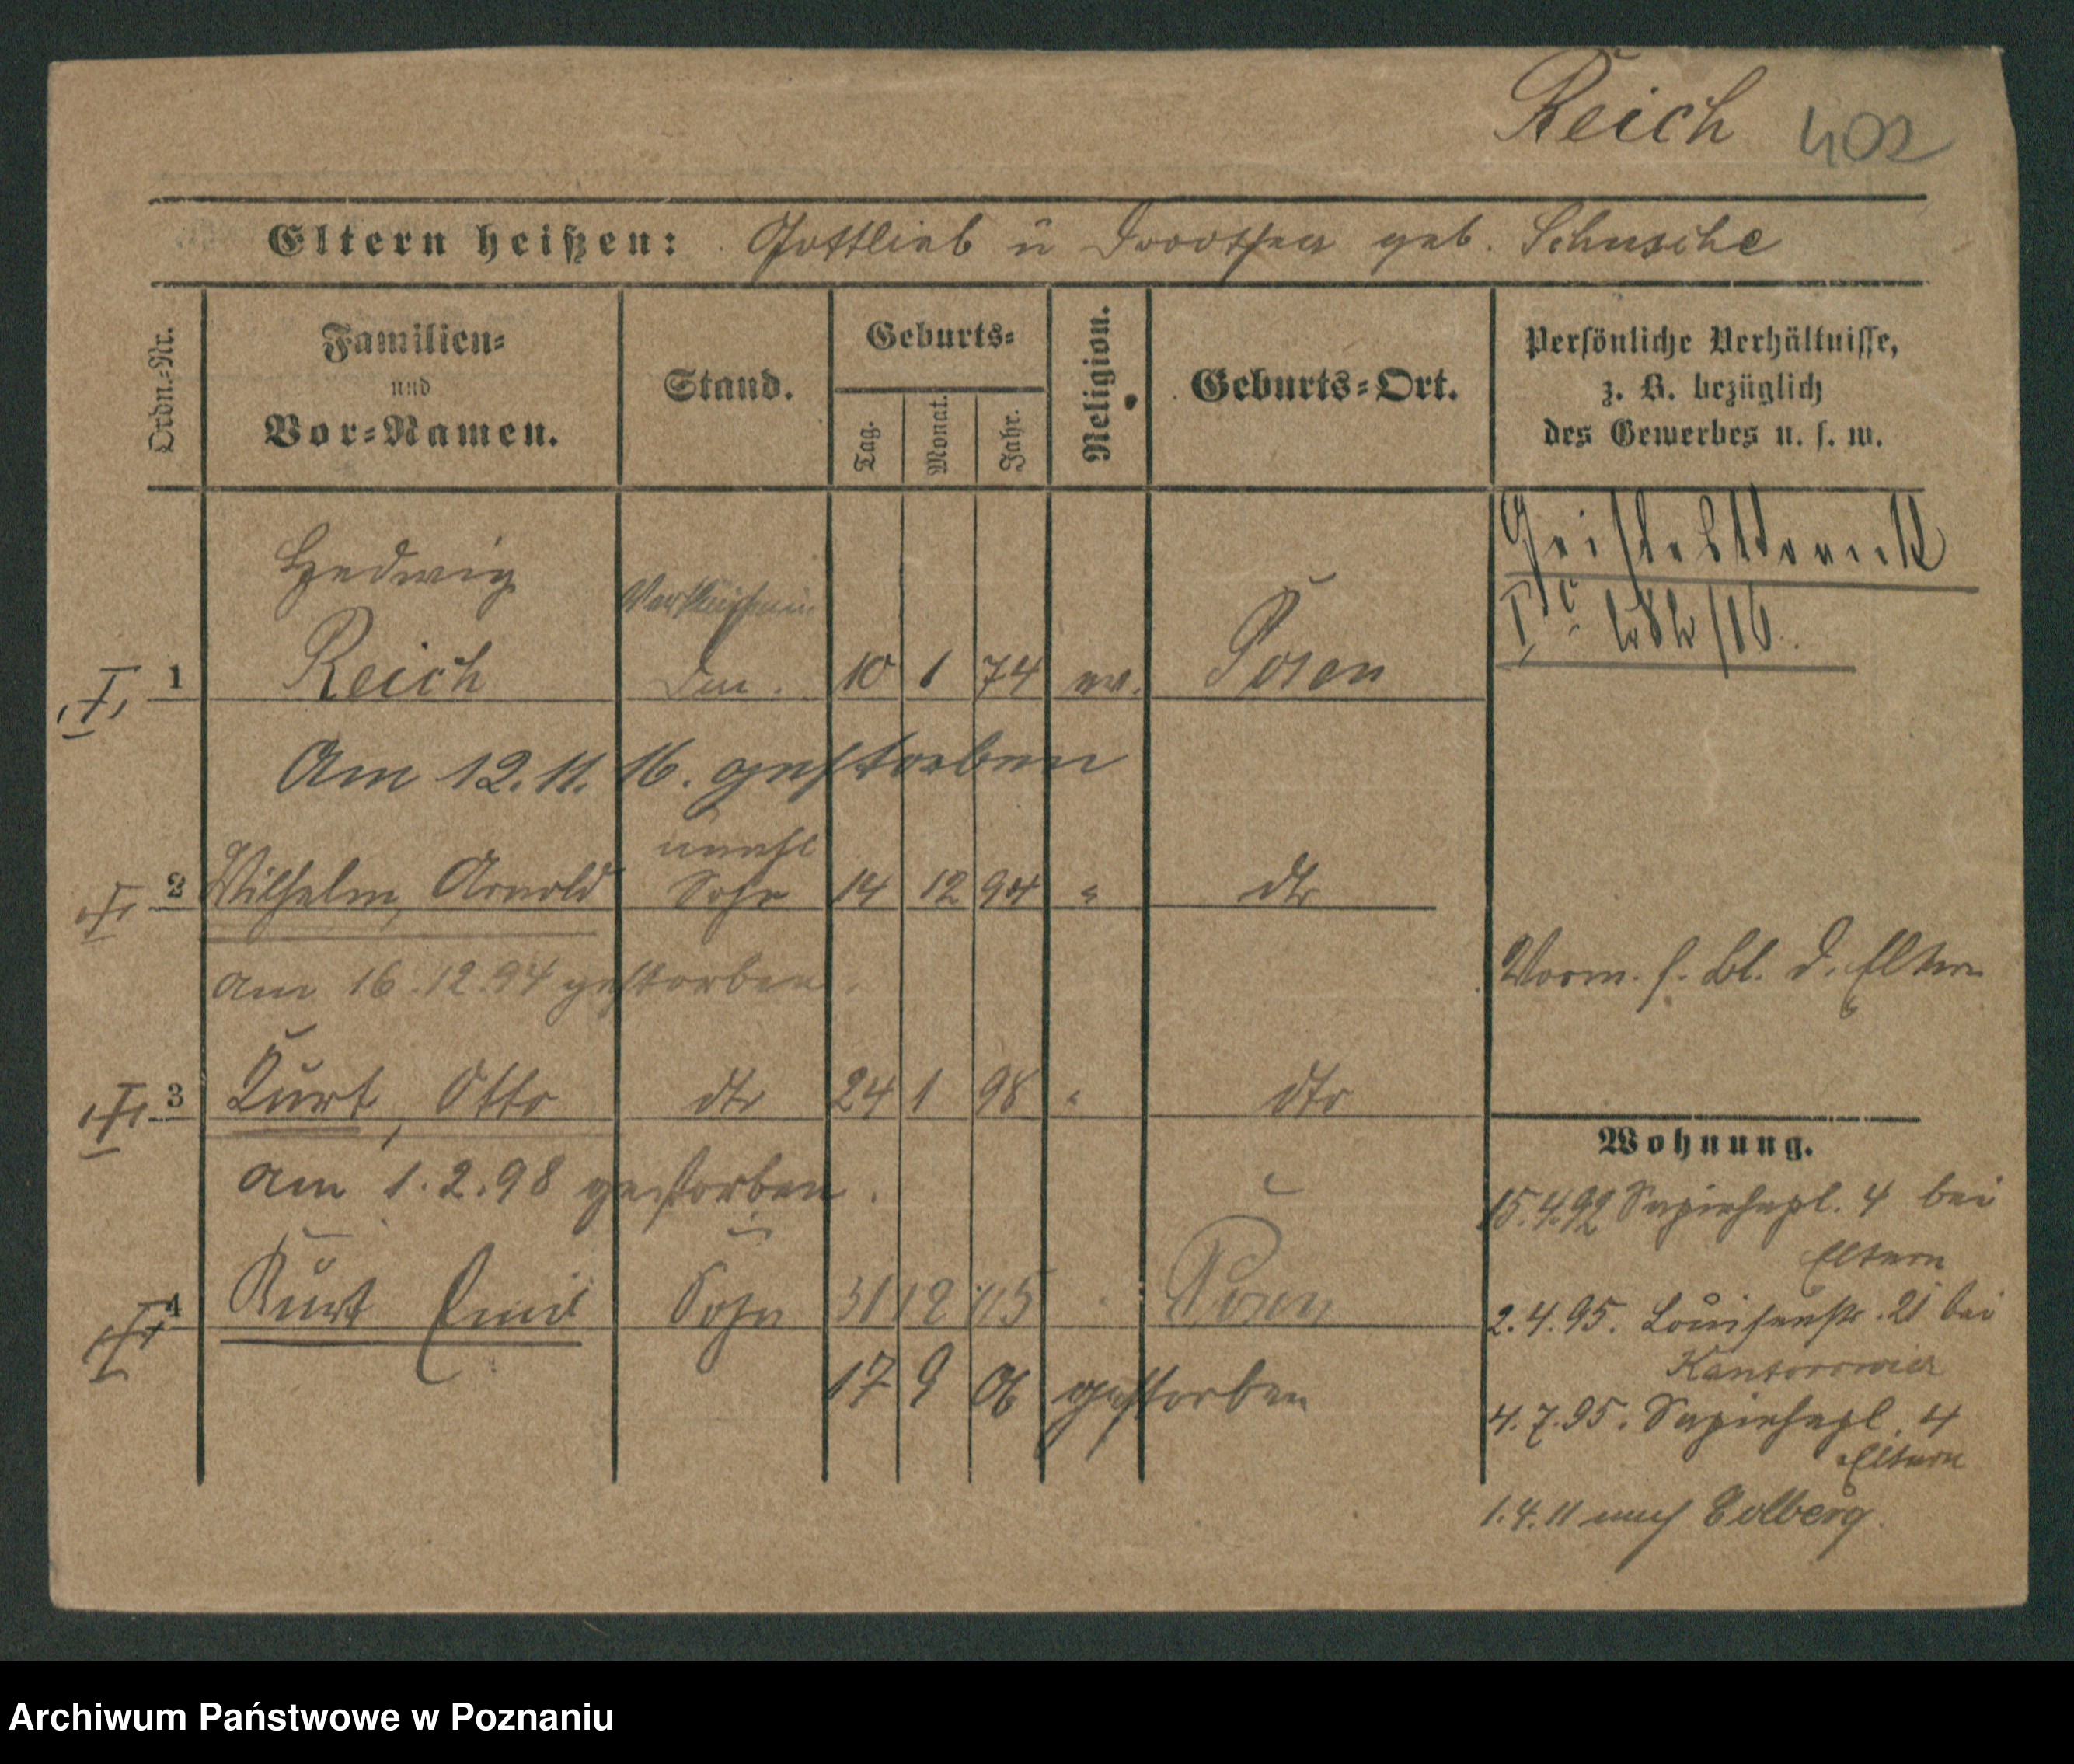 Reich 402
Eltern heißen: Gottlieb u Dorothea geb. Schusche
Ordn.-Nr.
Familien-
und
Vor-Namen.
Stand.
Geburts-
Tag.
Monat.
Jahr.
Religion.
Geburts-Ort.
Persönliche Verhältnisse,
z. B. bezüglich
des Gewerbes u. s. w.
Geisteskrank
Hedwig
Verkäuferin
1 Reich 10 1 74 ev. Posen
Am 12.11.16. gestorben
unehl
2 Wilhelm, Arnold Sohn 14 12 94 " dto
am 16.12.94 gestorben.
Vorm. s. Bl. d. Eltern
3 Kurt, Otto dto 24 1 98 " dto
am 1.2.98 gestorben.
Wohnung.
15.4.92 Sapiehapl. 4 bei
Eltern
4 Kurt Emil Sohn 31 12 05 Posen
2.4.95. Louisenstr. 21 bei
Kantorowicz
17 9 06 gestorben
4.7.95. Sapiehapl. 4
Eltern
1.4.11 nach Colberg.
Archiwum Państwowe w Poznaniu